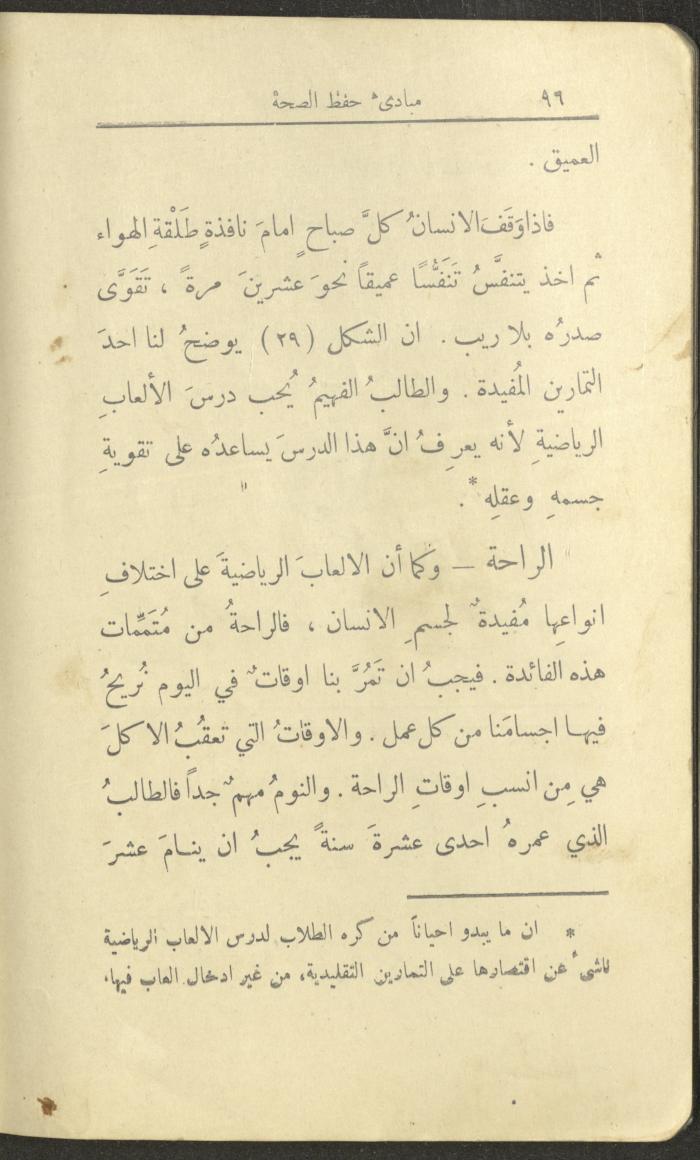 ٩٦ مبادىء حفظ الصحة
العميق .
فاذا وَقَفَ الانسانُ كلَّ صباحٍ امامَ نافذةٍ طَلْقةِ الهواء
ثم اخذ يتنفَّسُ تَنَفُّسًا عميقاً نحوَ عشرينَ مرةً ، تَقَوَّى
صدرُه بلا ريب . ان الشكل (٢٩) يوضحُ لنا احدَ
التمارين المُفيدة . والطالبُ الفهيمُ يُحب درسَ الألعابِ
الرياضيةِ لأنه يعرِفُ انَّ هذا الدرسَ يساعدُه على تقويةِ
جسمهِ وعقلِه * .
الراحة — وكما أن الالعابَ الرياضيةَ على اختلافِ
انواعِها مُفيدةٌ لجسمِ الانسان ، فالراحةُ من مُتَمِّمات
هذه الفائدة . فيجبُ ان تَمُرَّ بنا اوقاتٌ في اليوم نُريحُ
فيها اجسامَنا من كل عمل . والاوقاتُ التي تعقُبُ الاكلَ
هي مِن انسبِ اوقاتِ الراحة . والنومُ مهمٌ جداً فالطالبُ
الذي عمرهُ احدى عشرةَ سنةً يجبُ ان ينامَ عشرَ
* ان ما يبدو احياناً من كره الطلاب لدرس الالعاب الرياضية
ناشىءٌ عن اقتصارها على التمارين التقليدية، من غير ادخال العاب فيها.